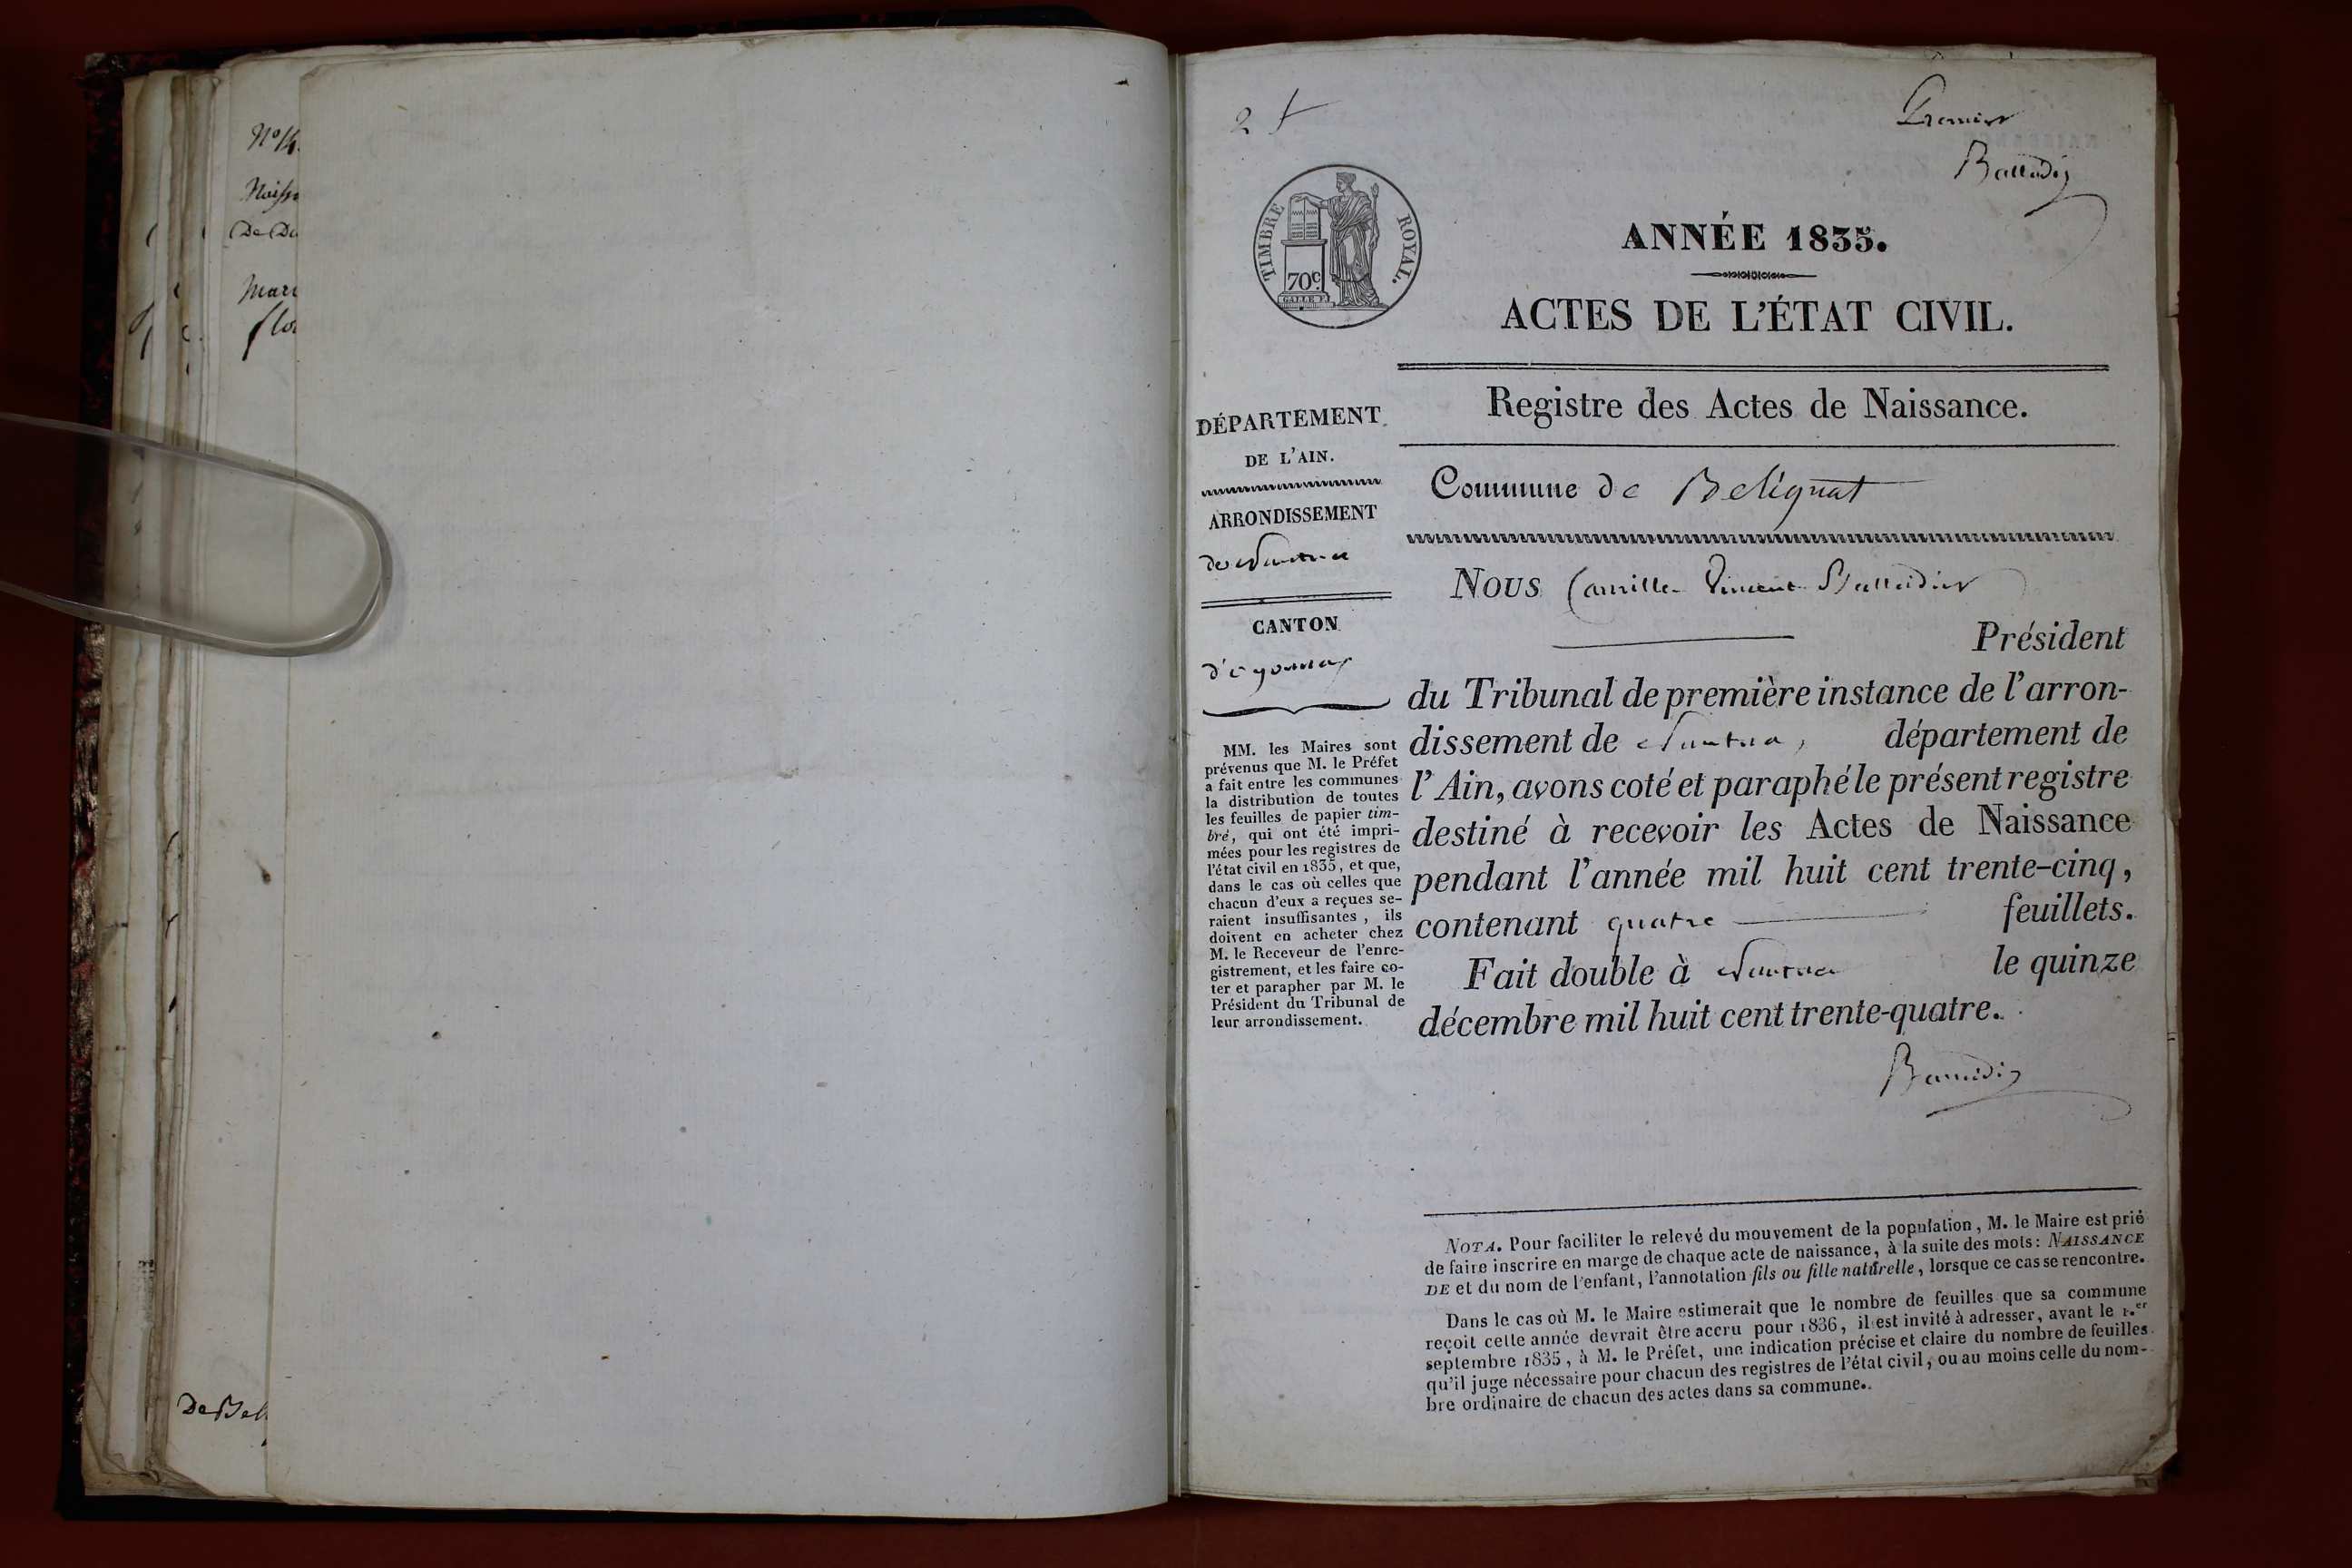 Nº 14
Naiss
De
Mari
flo
De Bel
2
Premier
Balleidier
TIMBRE ROYAL.
70 C.
ANNÉE 1835.
ACTES DE L'ÉTAT CIVIL.
Registre des Actes de Naissance.
DÉPARTEMENT
DE L'AIN.
ARRONDISSEMENT
de Nantua
CANTON
d'oyonnax
MM. les Maires sont
prévenus que M. le Préfet
a fait entre les communes
la distribution de toutes
les feuilles de papier tim-
bré, qui ont été impri-
mées pour les registres de
l'état civil en 1835, et que,
dans le cas où celles que
chacun d'eux a reçues se-
raient insuffisantes, ils
doivent en acheter chez
M. le Receveur de l'enre-
gistrement, et les faire co-
ter et parapher par M. le
Président du Tribunal de
leur arrondissement.
Commune de Belignat
Nous Camille Vincent Balleidier
Président
du Tribunal de première instance de l'arron-
dissement de Nantua, département de
l'Ain, avons coté et paraphé le présent registre
destiné à recevoir les Actes de Naissance
pendant l'année mil huit cent trente-cinq,
contenant quatre feuillets.
Fait double à Nantua le quinze
décembre mil huit cent trente-quatre.
Balleidier
NOTA. Pour faciliter le relevé du mouvement de la population, M. le Maire est prié
de faire inscrire en marge de chaque acte de naissance, à la suite des mots: NAISSANCE
DE et du nom de l'enfant, l'annotation fils ou fille naturelle, lorsque ce cas se rencontre.
Dans le cas où M. le Maire estimerait que le nombre de feuilles que sa commune
reçoit cette année devrait être accru pour 1836, il est invité à adresser, avant le 1.er
septembre 1835, à M. le Préfet, une indication précise et claire du nombre de feuilles
qu'il juge nécessaire pour chacun des registres de l'état civil, ou au moins celle du nom-
bre ordinaire de chacun des actes dans sa commune.